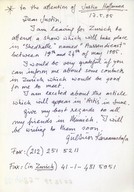 * to the attention of Justin Hoffmann
17.5.95
Dear Justin,
I am leaving for Zürich to
attend a show which will take place
in "Shedhalle" named
19th and 25th of May 1995.
I would be very gratefull if you
can inform me about some contacts
in Zurich which would be good
for me to meet.
I am excited about the article
which will appear in and
give my best regards to all
my friends in Munich. I will
be writing to them soon.
Fax: (212) 251 5211
Fax: (in Zurich) 41-1-481 5951